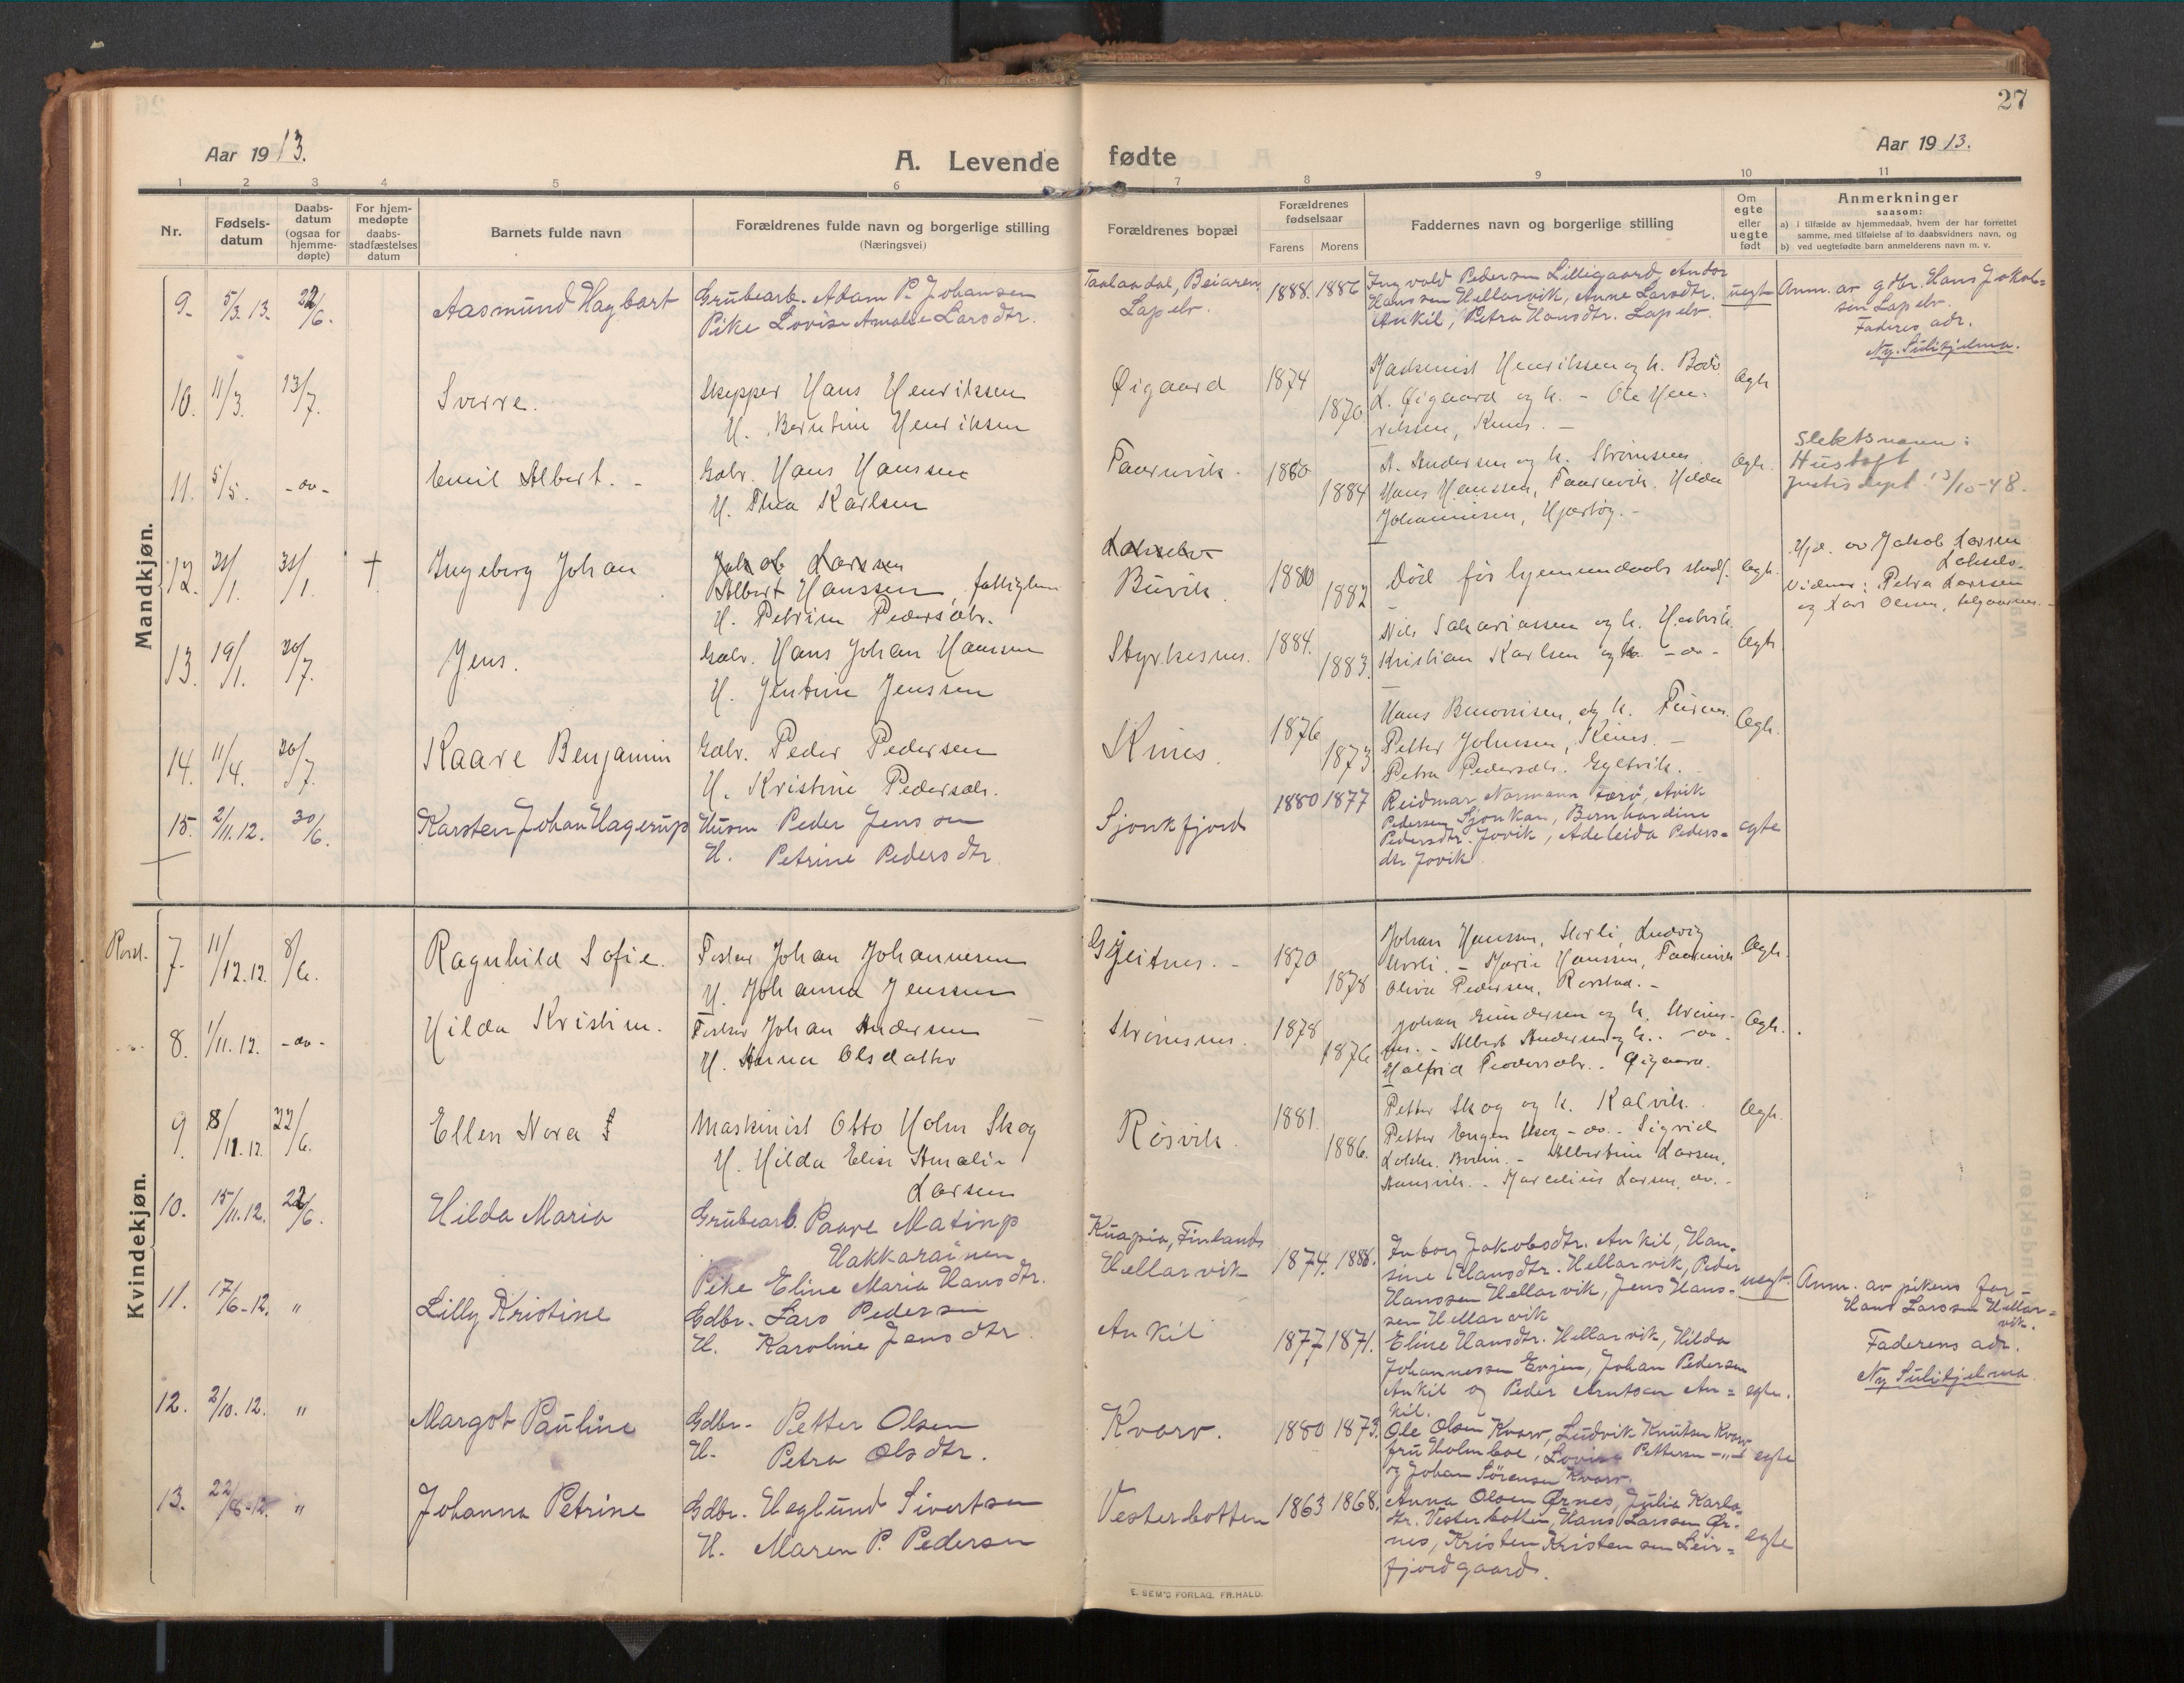 27
Aar 1913.
A. Levende fødte
Aar 1913.
1 2 3 4 5 6 7 8 9 10 11
Nr.
Fødsels-
datum
Daabs-
datum
(ogsaa for
hjemme-
døpte)
For hjem-
medøpte
daabs-
stadfæstelses
datum
Barnets fulde navn
Forældrenes fulde navn og borgerlige stilling
(Næringsvei)
Forældrenes bopæl
Forældrenes
fødselsaar
Farens Morens
Faddernes navn og borgerlige stilling
Om
egte
eller
uegte
født
Anmerkninger
saasom:
a) i tilfælde av hjemmedaab, hvem der har forrettet
samme, med tilføielse af to daabsvidners navn, og
b) ved uegtefødte barn anmelderens navn m. v.
Mandkjøn.
9. 5/3. 13. 22/6. Aasmund Hagbart
Grubearb. Adam P. Johansen
Pike Lovise Amalie Larsdtr.
Beiaren
Lapelv.
1888. 1886
Ingvald Pedersen Lilligaard, Andor
Hanssen Hellarvik, Anne Larsdtr.
Ankil, Petra Hansdtr. Lapelv.
uegte
Anm. av gdbr. Hans Jakob=
sen Lapelv.
Faderes adr.
Ny. Sulitjelma.
10. 11/3. 13/7. Sverre.
Skipper Hans Henriksen
H. Berntine Henriksen
Øigaard
1874
1870
Henriksen og h. Bodø.
L. Øigaard og h. - Ole Hen-
riksen,
Ægte
11. 5/5. -do- Emil Albert. -
Gabr. Hans Hanssen
H. Thea Karlsen
Faurvik.
1880
1884
A. Andersen og h. Strømsnes
Hans Hanssen, Faurvik. Hilda
Johannesen, Hjartøy. -
Ægte.
Slektsnavn:
Hustoft
Justisdept. 13/10-48.
12. 31/1. 31/1. + Ingeberg Johan
Jakob Larssen
Albert Hanssen, fattiglem
H. Petrine Pedersdtr.
Lakselv
Buvik.
1880
1882
Død før hjemmedaabs stadf.
Ægte.
Hjd. av Jakob Larsen
Lakselv.
Vidner: Petra Larssen
og Lars Olsen,
13. 19/1. 20/7. Jens.
Gabr. Hans Johan Hanssen
H. Jentine Jenssen
Styrkesnes.
1884.
1883.
Nils Sakariassen og h. Hestvik.
Kristian Karlsen og h. -do-
Ægte
14. 11/4. 20/7. Kaare Benjamin
Gabr. Peder Pedersen
H. Kristine Pedersdtr.
Kines.
1876
1873.
Hans Benonisen, og h.
Petter Johnsen, Kines. -
Petra Pedersdtr. Gyltvik.
Ægte.
15. 2/11. 12. 30/6. Karsten Johan Hagerup
Husm Peder Jenssen
H. Petrine Pedersdtr
Sjonkfjord
1880 1877
Reidmar Normann Færø, Arvik
Pedersen Sjonkan, Bernhardine
Pedersdtr. Jovik, Adeleida Peders=
dtr. Jovik
egte
Kvindekjøn.
7. 11/12. 12. 8/6. Ragnhild Sofie.
Fisker Johan Johannesen
H. Johanna Jenssen
Gjeitnes. -
1870
1878
Johan Hanssen, Storli, Ludvig
Storli. - Marie Hanssen, Faurvik
Oliva Pedersen, Rørstad. -
Ægte.
8. 1/11. 12. -do- Hilda Kristine.
Fisker Johan Andersen
H. Anna Olsdatter
Strømsnes.
1878
1876
Johan Gundersen og h. Strøms-
nes. - Albert Andersen og h. -do-
Halfrid Pedersdtr. Øigaard.
Ægte.
9. 8/11. 12. 22/6. Ellen Nora
Maskinist Otto Holm Skog
H. Hilda Elise Amalie
Larsen
Røsvik.
1881.
1886.
Petter Skog og h. Kalvik.
Petter Eugen Skog -do-. Sigrid
Bodin. - Albertine Larsen,
Marcelius Larsen, do. -
Ægte.
10. 15/11. 12. 22/6. Hilda Maria
Grubearb. Paave Matinp
Hakkarainen
Pike Eline Maria Hansdtr.
Kuapio, Finland
Hellarvik
1874. 1886.
Inborg Jakobsdtr. Ankil, Han-
sine Hansdtr. Hellarvik, Peder
Hanssen Hellarvik, Jens Hans-
sen Hellarvik
uegt.
Anm. av pikens far -
Hans Larssen Hellar=
vik.
Faderens adr.
Ny Sulitjelma
11. 17/6-12. " Lilly Kristine
Gdbr. Lars Pedersen
H. Karoline Jensdtr
Ankil
1877 1871.
Eline Hansdtr. Hellarvik, Hilda
Johannessen Evjen, Johan Pedersen
Ankil og Peder Arntsen An=
kil.
egte.
12. 2/10. 12. " Margot Pauline
Gdbr. Petter Olsen
H. Petra Olsdtr.
Kvarv.
1880 1873.
Ole Olsen Kvarv, Ludvik Knutsen Kvarv
fru Holmboe, Lovise Pettersen -"-
og Johan Sørensen Kvarv.
egte
13. 22/8-12. " Johanna Petrine
Gdbr. Heglund Sivertsen
H. Maren P. Pedersen
Vesterbotten
1863 1868.
Anna Olsen Ørnes, Julia Karls
dtr. Vesterbotten, Hans Larssen Ør-
nes, Kristen Kristensen Leir=
fjordgaard.
egte
E. SEM'S FORLAG, FR.HALD.